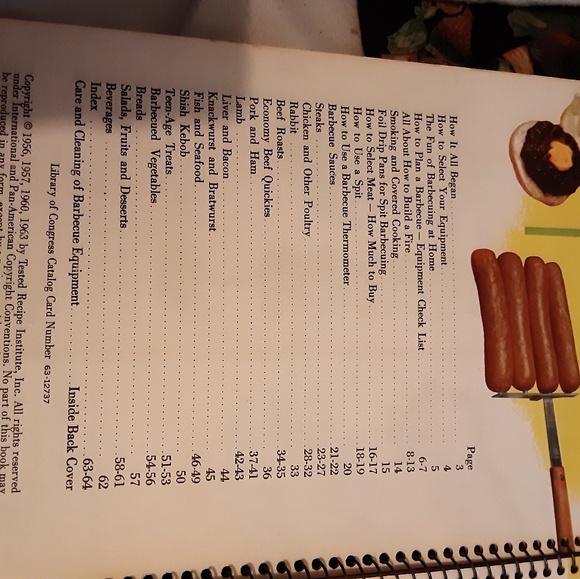 Page
How It All Began 3
How to Select Your Equipment 4
The Fun of Barbecuing at Home 5
How to Plan a Barbecue — Equipment Check List 6-7
All About How to Build a Fire 8-13
Smoking and Covered Cooking 14
Foil Drip Pans for Spit Barbecuing 15
How to Select Meat — How Much to Buy 16-17
How to Use a Spit 18-19
How to Use a Barbecue Thermometer 20
Barbecue Sauces 21-22
Steaks 23-27
Chicken and Other Poultry 28-32
Rabbit 33
Beef Roasts 34-35
Economy Beef Quickies 36
Pork and Ham 37-41
Lamb 42-43
Liver and Bacon 44
Knackwurst and Bratwurst 45
Fish and Seafood 46-49
Shish Kebob 50
Teen-Age Treats 51-53
Barbecued Vegetables 54-56
Breads 57
Salads, Fruits and Desserts 58-61
Beverages 62
Index 63-64
Care and Cleaning of Barbecue Equipment Inside Back Cover
Library of Congress Catalog Card Number 63-12737
Copyright © 1956, 1957, 1960, 1963 by Tested Recipe Institute, Inc. All rights reserved
under International and Pan-American Copyright Conventions. No part of this book may
be reproduced in any form, except by